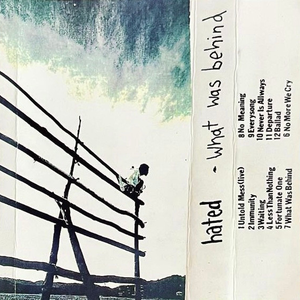 hated - what was behind
1 Untold Mess (live)
2 Immunity
3 Waiting
4 Less Than Nothing
5 Fortunate One
7 What Was Behind
8 No Meaning
9 Everysong
10 Never Is Allways
11 Departure
12 Ballad
6 No More We Cry